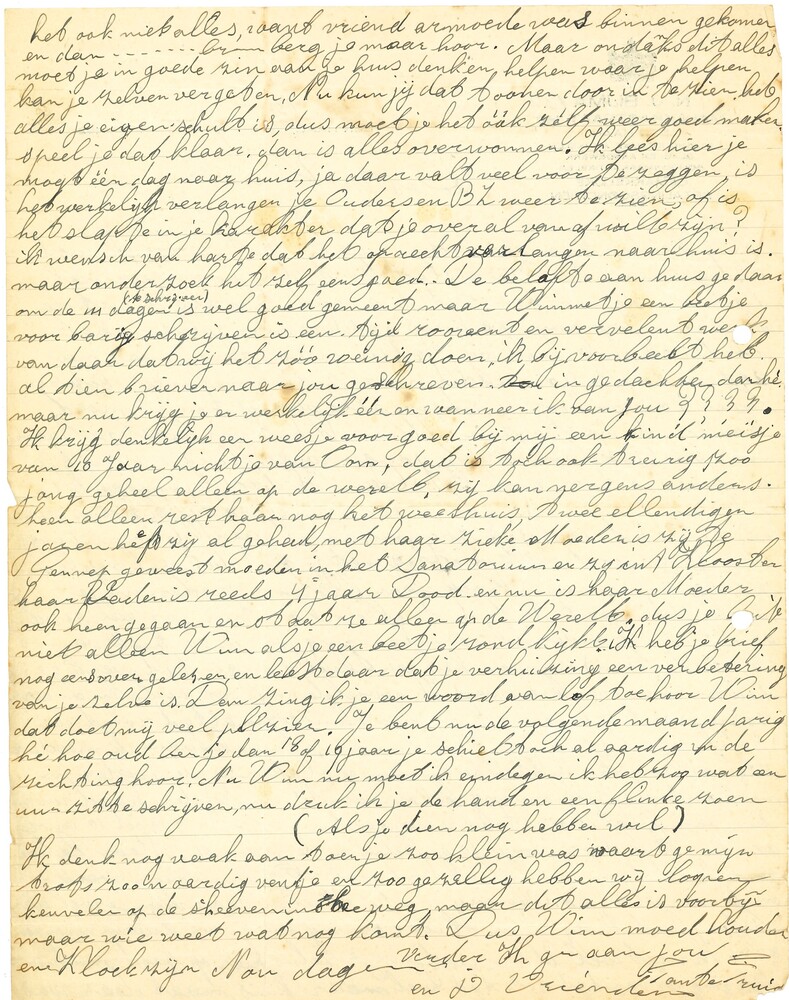 het ook niet alles, want vriend armoede was binnen gekomen
en dan - - - - - - - berg je maar hoor. Maar ondanks dit alles
moet je in goede zin aan je huis denken, helpen waar je helpen
kan je zelven vergeten, Nu kun jij dat toonen door in te zien het
alles je eigen schult is, dus moet je het óók zélf weer goed maken.
speel je dat klaar. dan is alles overwonnen. Ik lees hier je
mogt één dag naar huis, ja daar valt veel voor te zeggen, is
het werkelijk verlangen je Ouders en B Z weer te zien, of is
het slapte in je karakter dat je overal vanaf wilt zijn?
ik wensch van harte dat het oprecht verlangen naar huis is.
maar onderzoek het zelf eens goed.. De belofte aan huis gedaan
om de 14 dagen (te schrijven) is wel goed gemeent maar Wim met je een beetje
voorbarig schrijven is een tijd roovent en vervelent werk
van daar dat wij het zóó weinig doen, ik bij voorbeelt heb
al tien brieven naar jou geschreven in gedachten dan hé,
maar nu krijg je er werkelijk één en wanneer ik van jou ? ? ? ?.
Ik krijg denkelijk een weesje voor goed bij mij een kind meisje
van 10 Jaar nichtje van Oom, dat is toch ook treurig zoo
jong geheel alleen op de werelt, zij kan nergens anders
heen alleen rest haar nog het weeshuis, twee ellendigen
jaren heeft zij al gehad, met haar zieke Moeder is zij te
Gennep geweest moeder in het Sanatorium en zij in 't Klooster
haar Vader is reeds 4 jaar Dood. en nu is haar Moeder
ook heen gegaan en staat ze alleen op de Werelt, dus je
niet alleen Wim als je een beetje rond kijkt. Ik heb je brief
nog eens over gelezen, en leest daar dat je verhuizing een verbetering
van je zelve is. Dan zing ik je een woord van lof toe hoor Wim
dat doet mij veel plezier. Je bent nu de volgende maand jarig
hé hoe oud ben je dan 18 of 19 jaar je schiet toch al aardig in de
richting hoor. Nu Wim nu moet ik eindegen ik heb zoo wat een
uur zitte schrijven, nu druk ik je de hand en een flinke zoen
(Als je dien nog hebben wil)
Ik denk nog vaak aan toen je zoo klein was waart ge mijn
trots zoo'n aardig ventje en zoo gezellig hebben wij loopen
keuvelen op de scheveningse weg, maar dit alles is voorbij
maar wie weet wat nog komt. Dus Wim moed houden
en Kloek zijn Nou dagen verder Ik ga aan jou
en Vrienden Tante Truus